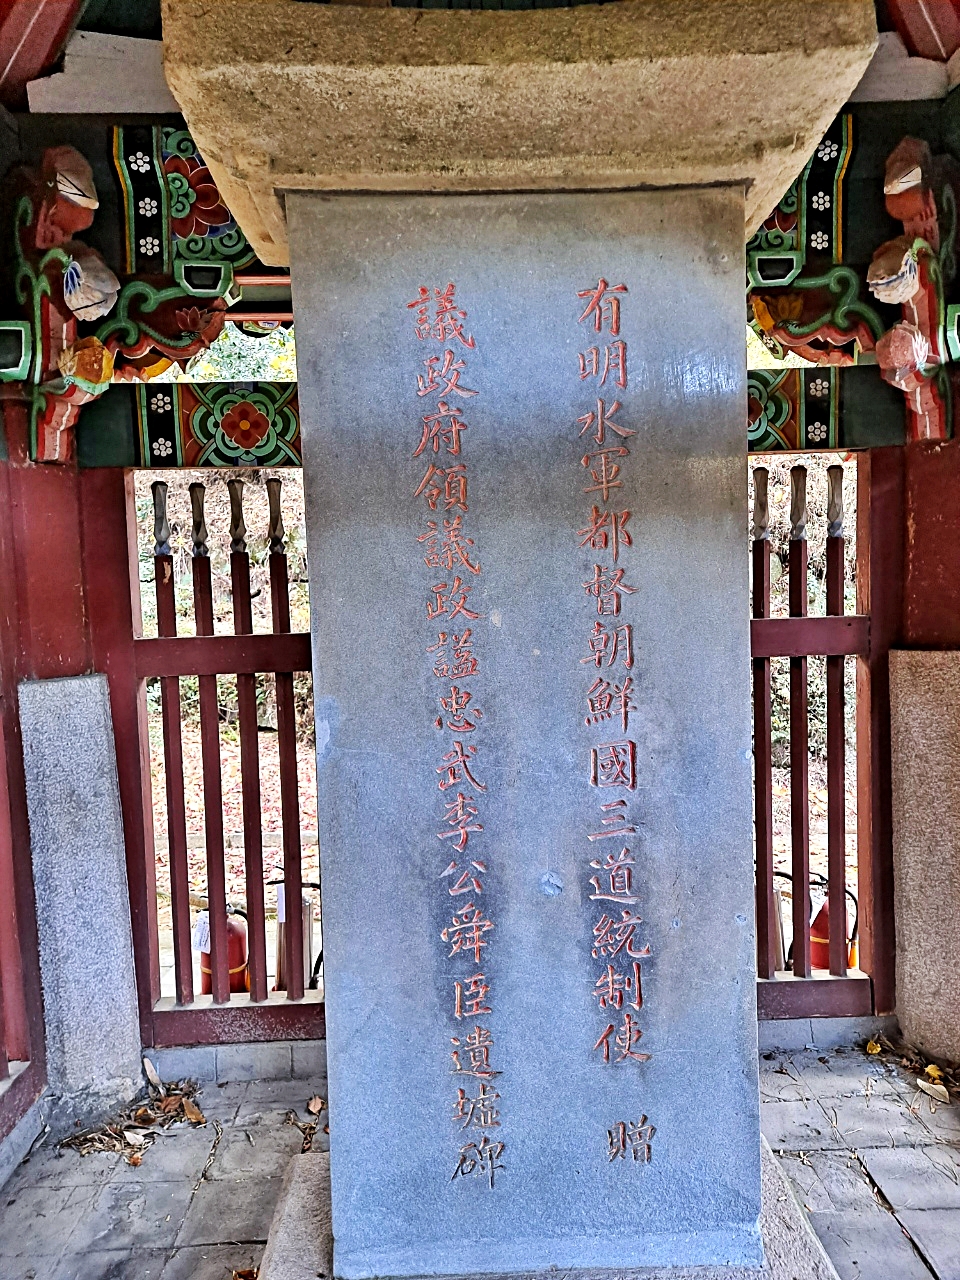 有明水軍都督朝鮮國三道統制使 贈
議政府領議政謚忠武李公舜臣遺墟碑